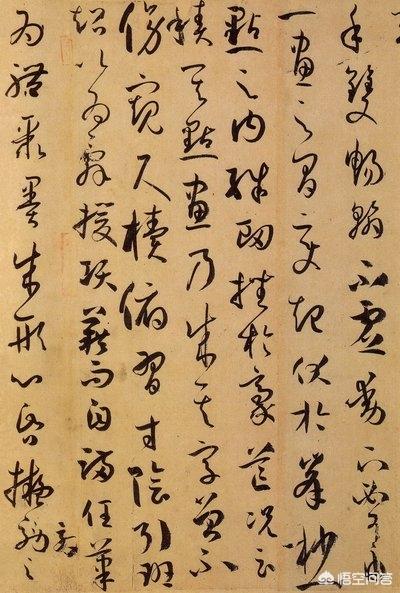 手雙暢翰不虛動下必有由
一畫之間變起伏於峯杪一
點之內殊衄挫於豪芒況云
積其點畫乃成其字曾不
傍窺尺犢俯習寸陰引班
超以為辭援項籍而自滿任筆
為體聚墨成形心昏擬效之方
悟空问答